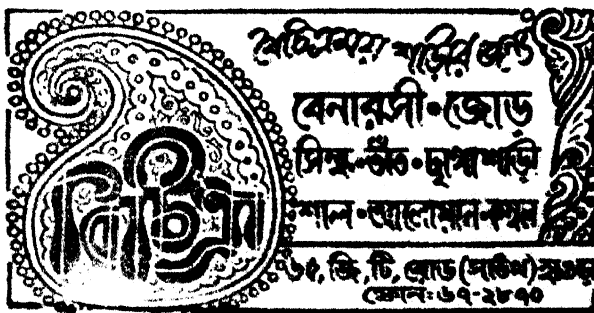 বৈচিত্রময় শাড়ির জন্য
বেনারসী • জোড়
সিল্ক • তাঁত • ছাপা শাড়ী
শাল • আলোয়ান • কম্বল
৬৫, জি, টি, রোড (সাউথ) হাওড়া
ফোন: ৬৭-২৮৭০